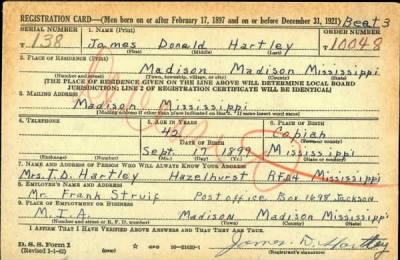 REGISTRATION CARD—(Men born on or after February 17, 1897 and on or before December 31, 1921) Beat 3
SERIAL NUMBER 1. NAME (Print) ORDER NUMBER
T 138 James Donald Hartley 10048
(First) (Middle) (Last)
2. PLACE OF RESIDENCE (Print)
Madison Madison Mississippi
(Number and street) (Town, township, village, or city) (County) (State)
[THE PLACE OF RESIDENCE GIVEN ON THE LINE ABOVE WILL DETERMINE LOCAL BOARD
JURISDICTION; LINE 2 OF REGISTRATION CERTIFICATE WILL BE IDENTICAL]
3. MAILING ADDRESS
Madison Mississippi
[Mailing address if other than place indicated on line 2. If same insert word same]
4. TELEPHONE 5. AGE IN YEARS 6. PLACE OF BIRTH
42 Copiah
DATE OF BIRTH (Town or county)
Sept. 17 1899 Mississippi
(Exchange) (Number) (Mo.) (Day) (Yr.) (State or country)
7. NAME AND ADDRESS OF PERSON WHO WILL ALWAYS KNOW YOUR ADDRESS
Mrs. T. D. Hartley Hazelhurst RFD4 Mississippi
8. EMPLOYER'S NAME AND ADDRESS
Mr. Frank Struif Postoffice Box 1698 Jackson
9. PLACE OF EMPLOYMENT OR BUSINESS
M.I.A. Madison Madison Mississippi
(Number and street or R. F. D. number) (Town) (County) (State)
I AFFIRM THAT I HAVE VERIFIED ABOVE ANSWERS AND THAT THEY ARE TRUE.
D. S. S. Form 1
(Revised 1-1-42) James D. Hartley
(Registrant's signature)